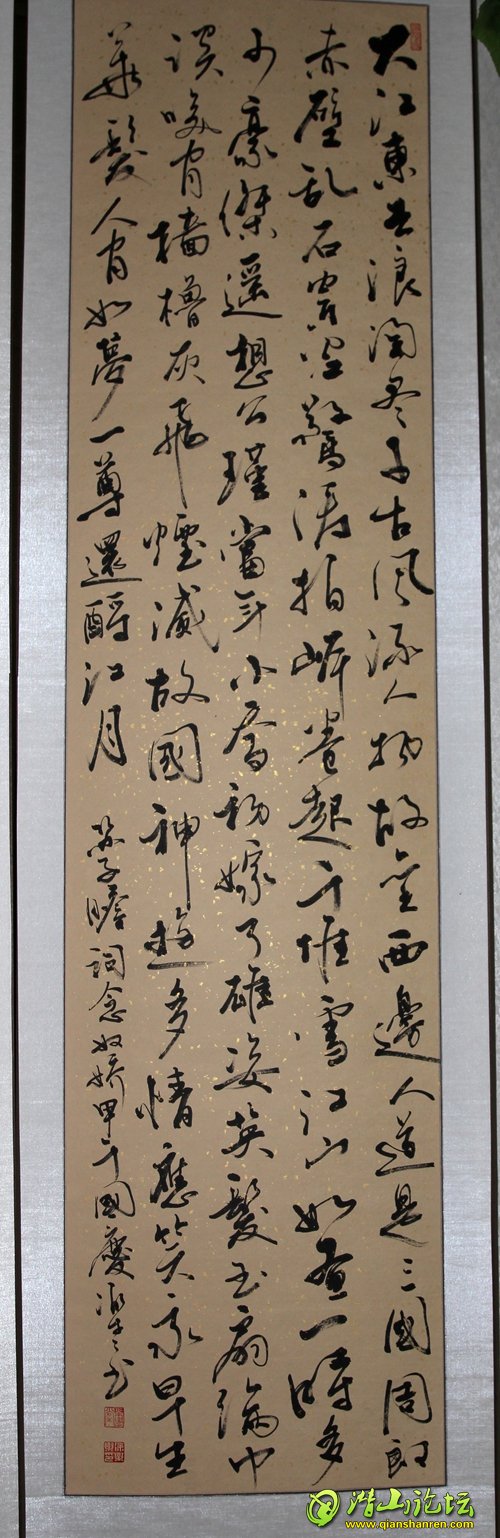 大江東去浪淘尽千古風流人物故壘西邊人道是三國周郎
赤壁乱石穿空驚涛拍岸卷起千堆雪江山如畫一時多
少豪傑遥想公瑾當年小喬初嫁了雄姿英發羽扇綸巾
談咲间檣櫓灰飛煙滅故國神遊多情應笑我早生
華髮人间如夢一尊還酹江月
苏子瞻詞念奴娇甲午國慶书
潜山论坛
www.qianshanren.com